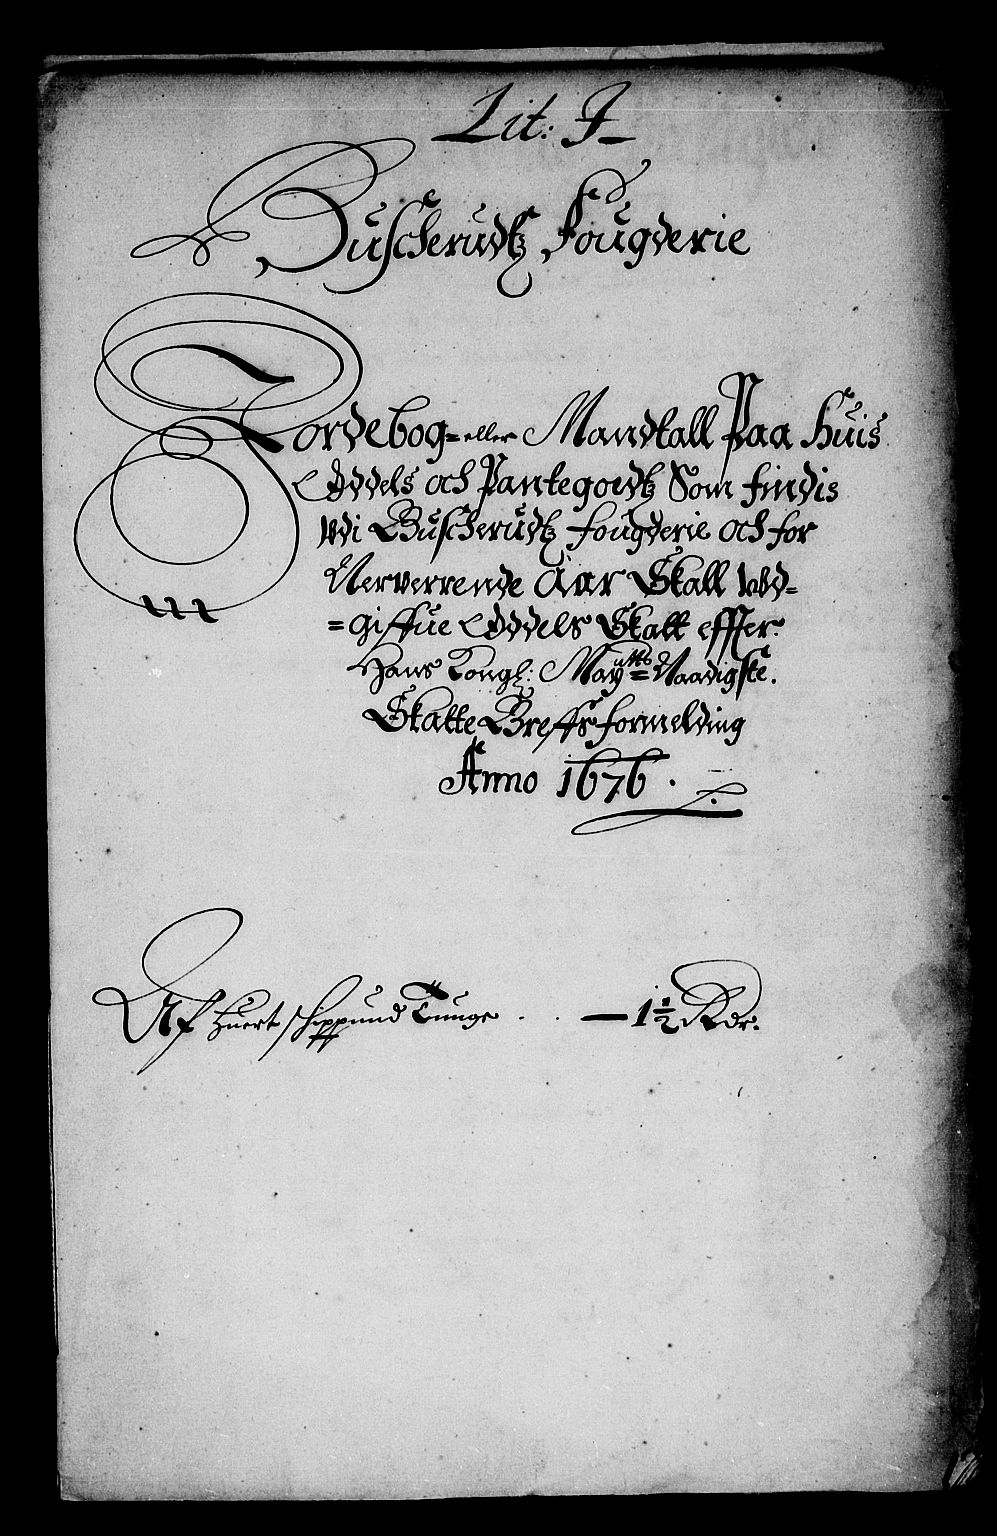 Lit: J
Buscherudtz Fougderie
Jordebog= eller Mandtall Paa Huis
Oddels och Pantegodtz Som findis
wdi Buscherudtz fougderie och for
Nerverrende Aar Skall wd=
=giffue Oddels Skatt effter
Hans Kongl: May:tts Naadigste
Skatte Breffs formelding
Anno 1676.
Af huert schippund Tunge . . — 1½ Rdr.